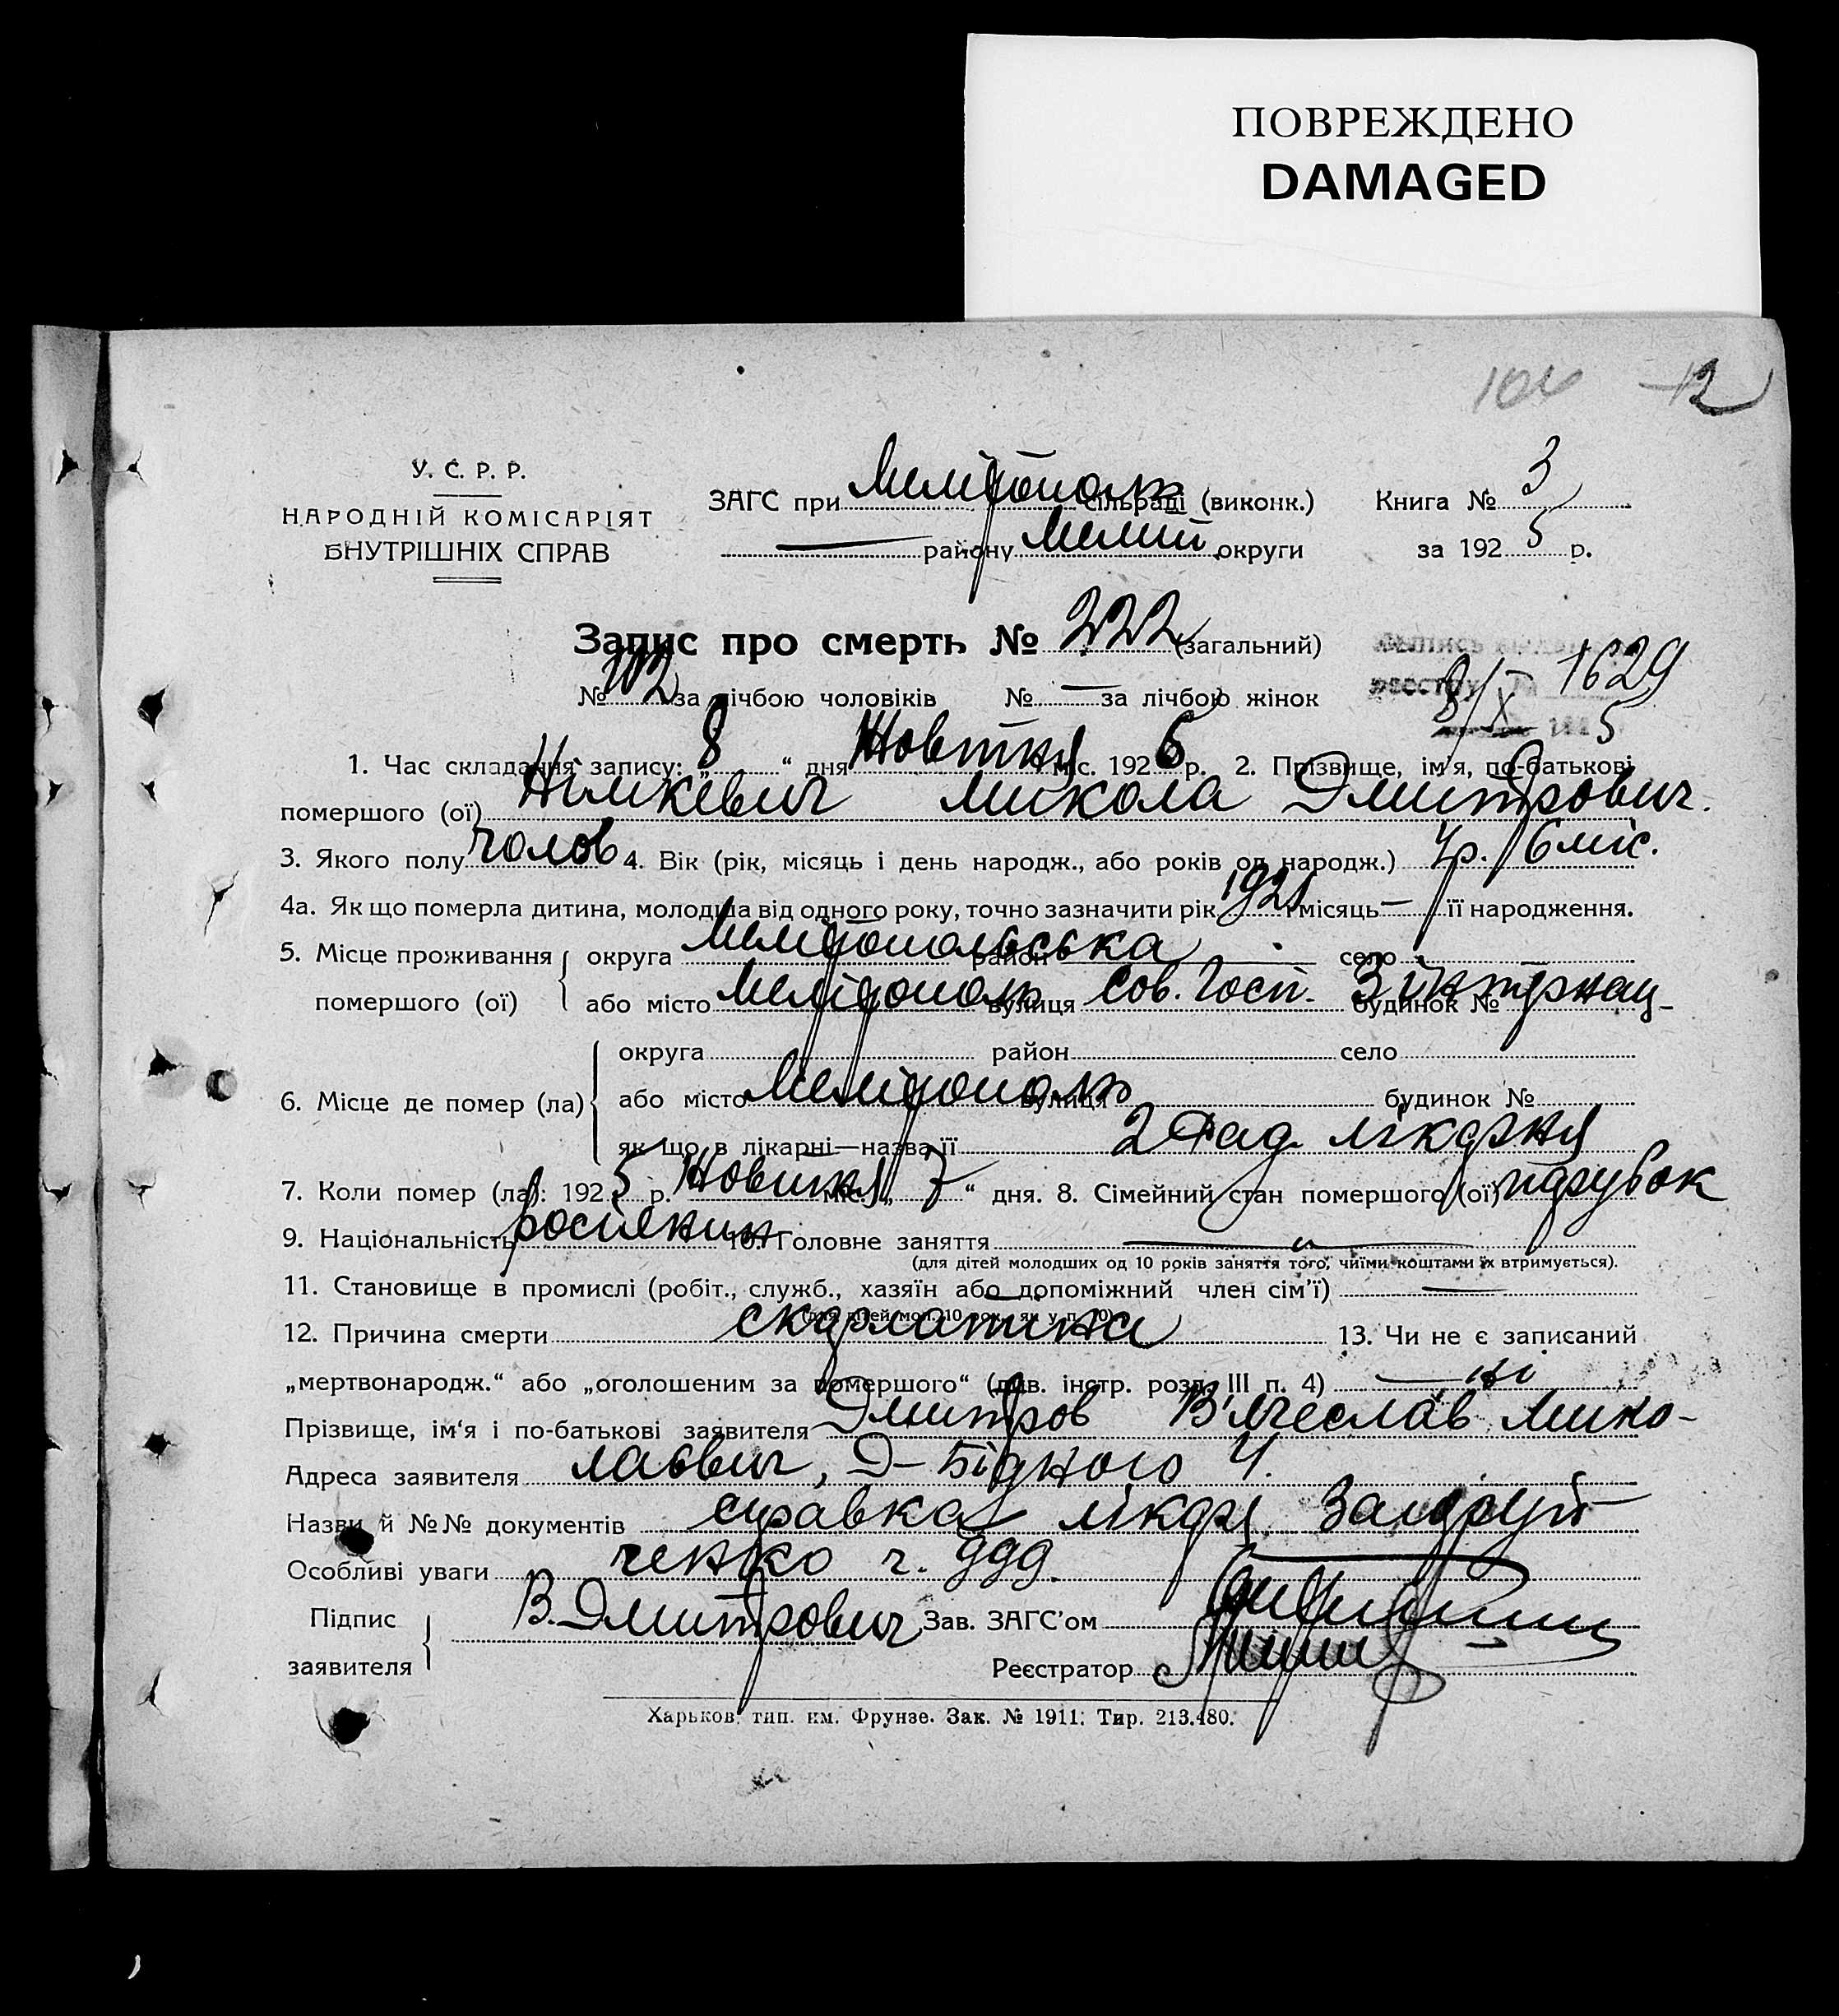 ПОВРЕЖДЕНО
DAMAGED
12
У. С. Р. Р.
НАРОДНІЙ КОМІСАРІЯТ
ВНУТРІШНІХ СПРАВ
ЗАГС при Мелітополь сільраді (виконк.) Книга № 3
— району Меліт округи за 1925 р.
Запис про смерть № 222 (загальний)
№ 102 за лічбою чоловіків № — за лічбою жінок
1629
8/X 1925
1. Час складання запису: „8“ дня Жовтня міс. 1925 р. 2. Прізвище, ім'я, по-батькові
помершого (ої) Німкевич Микола Дмитрович.
3. Якого полу чолов 4. Вік (рік, місяць і день народж., або років од народж.) 4р. 6 міс.
4а. Як що померла дитина, молодша від одного року, точно зазначити рік 1921 місяць — її народження.
5. Місце проживання округа Мелітопольська район — село
помершого (ої) або місто Мелітополь вулиця Сов. Госп. будинок № 3 інтернац-
округа район село
6. Місце де помер (ла) або місто Мелітополь вулиця будинок №
як що в лікарні—назва її 2 Рад лікарня
7. Коли помер (ла): 1925 р. Жовтня міс. „7“ дня. 8. Сімейний стан помершого (ої) парубок
9. Національність росіянин 10. Головне заняття —
(для дітей молодших од 10 років заняття того, чиїми коштами їх втримується).
11. Становище в промислі (робіт., служб., хазяїн або допоміжний член сім'ї) —
(для дітей мол. 10 рок. як у п. 10)
12. Причина смерти скарлатина 13. Чи не є записаний
„мертвонародж.“ або „оголошеним за помершого“ (див. інстр. розд. III п. 4) — ні
Прізвище, ім'я і по-батькові заявителя Дмитров В'ячеслав Мико-
Адреса заявителя лаєвич, Д-Бідного 4.
Назви й №№ документів справка лікаря
Особливі уваги ченко ч. 999.
Підпис заявителя В. Дмитрович Зав. ЗАГС'ом
Реєстратор
Харьков, тип. им. Фрунзе. Зак. № 1911. Тир. 213.480.